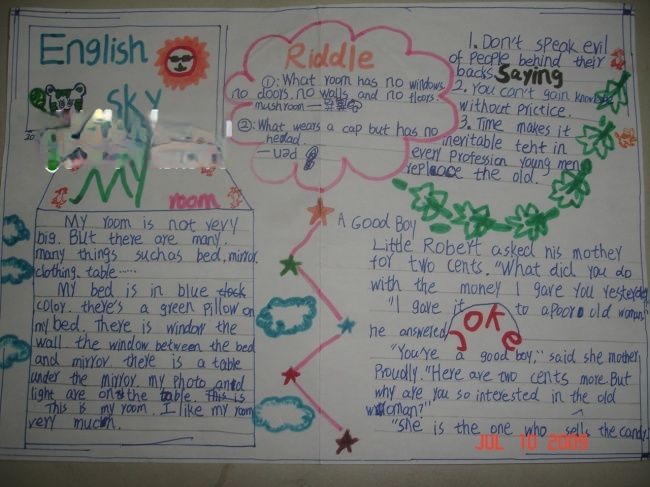 English
SKY
My
room
My room is not very
big. But there are many.
many things suchas bed, mirror
clothing table ······
My bed is in blue
color. there's a green pillow on
my bed. There is window the
wall the window between the bed
and mirror there is a table
under the mirror. my photo and
light are on the table. This is
This is my room. I like my room
very much.
Riddle
①: What room has no windows
no doors. no walls and no floors.
mushroom
②: What wears a cap but has no
head.
pen
Saying
1. Don't speak evil
of people behind their
backs
2. You can't gain
without prictice.
3. Time makes it
inevitable teht in
every Profession young men
replace the old.
A Good Boy
Little Robert asked his mother
for two cents. "What did you do
with the money I gave you yesterday
"I gave it to apoor old woman"
he answered
Joke
"You're a good boy," said she mother
Proudly. "Here are two cents more. But
why are you so interested in the old
woman?"
"She is the one who sells the candy.
JUL 10 2009